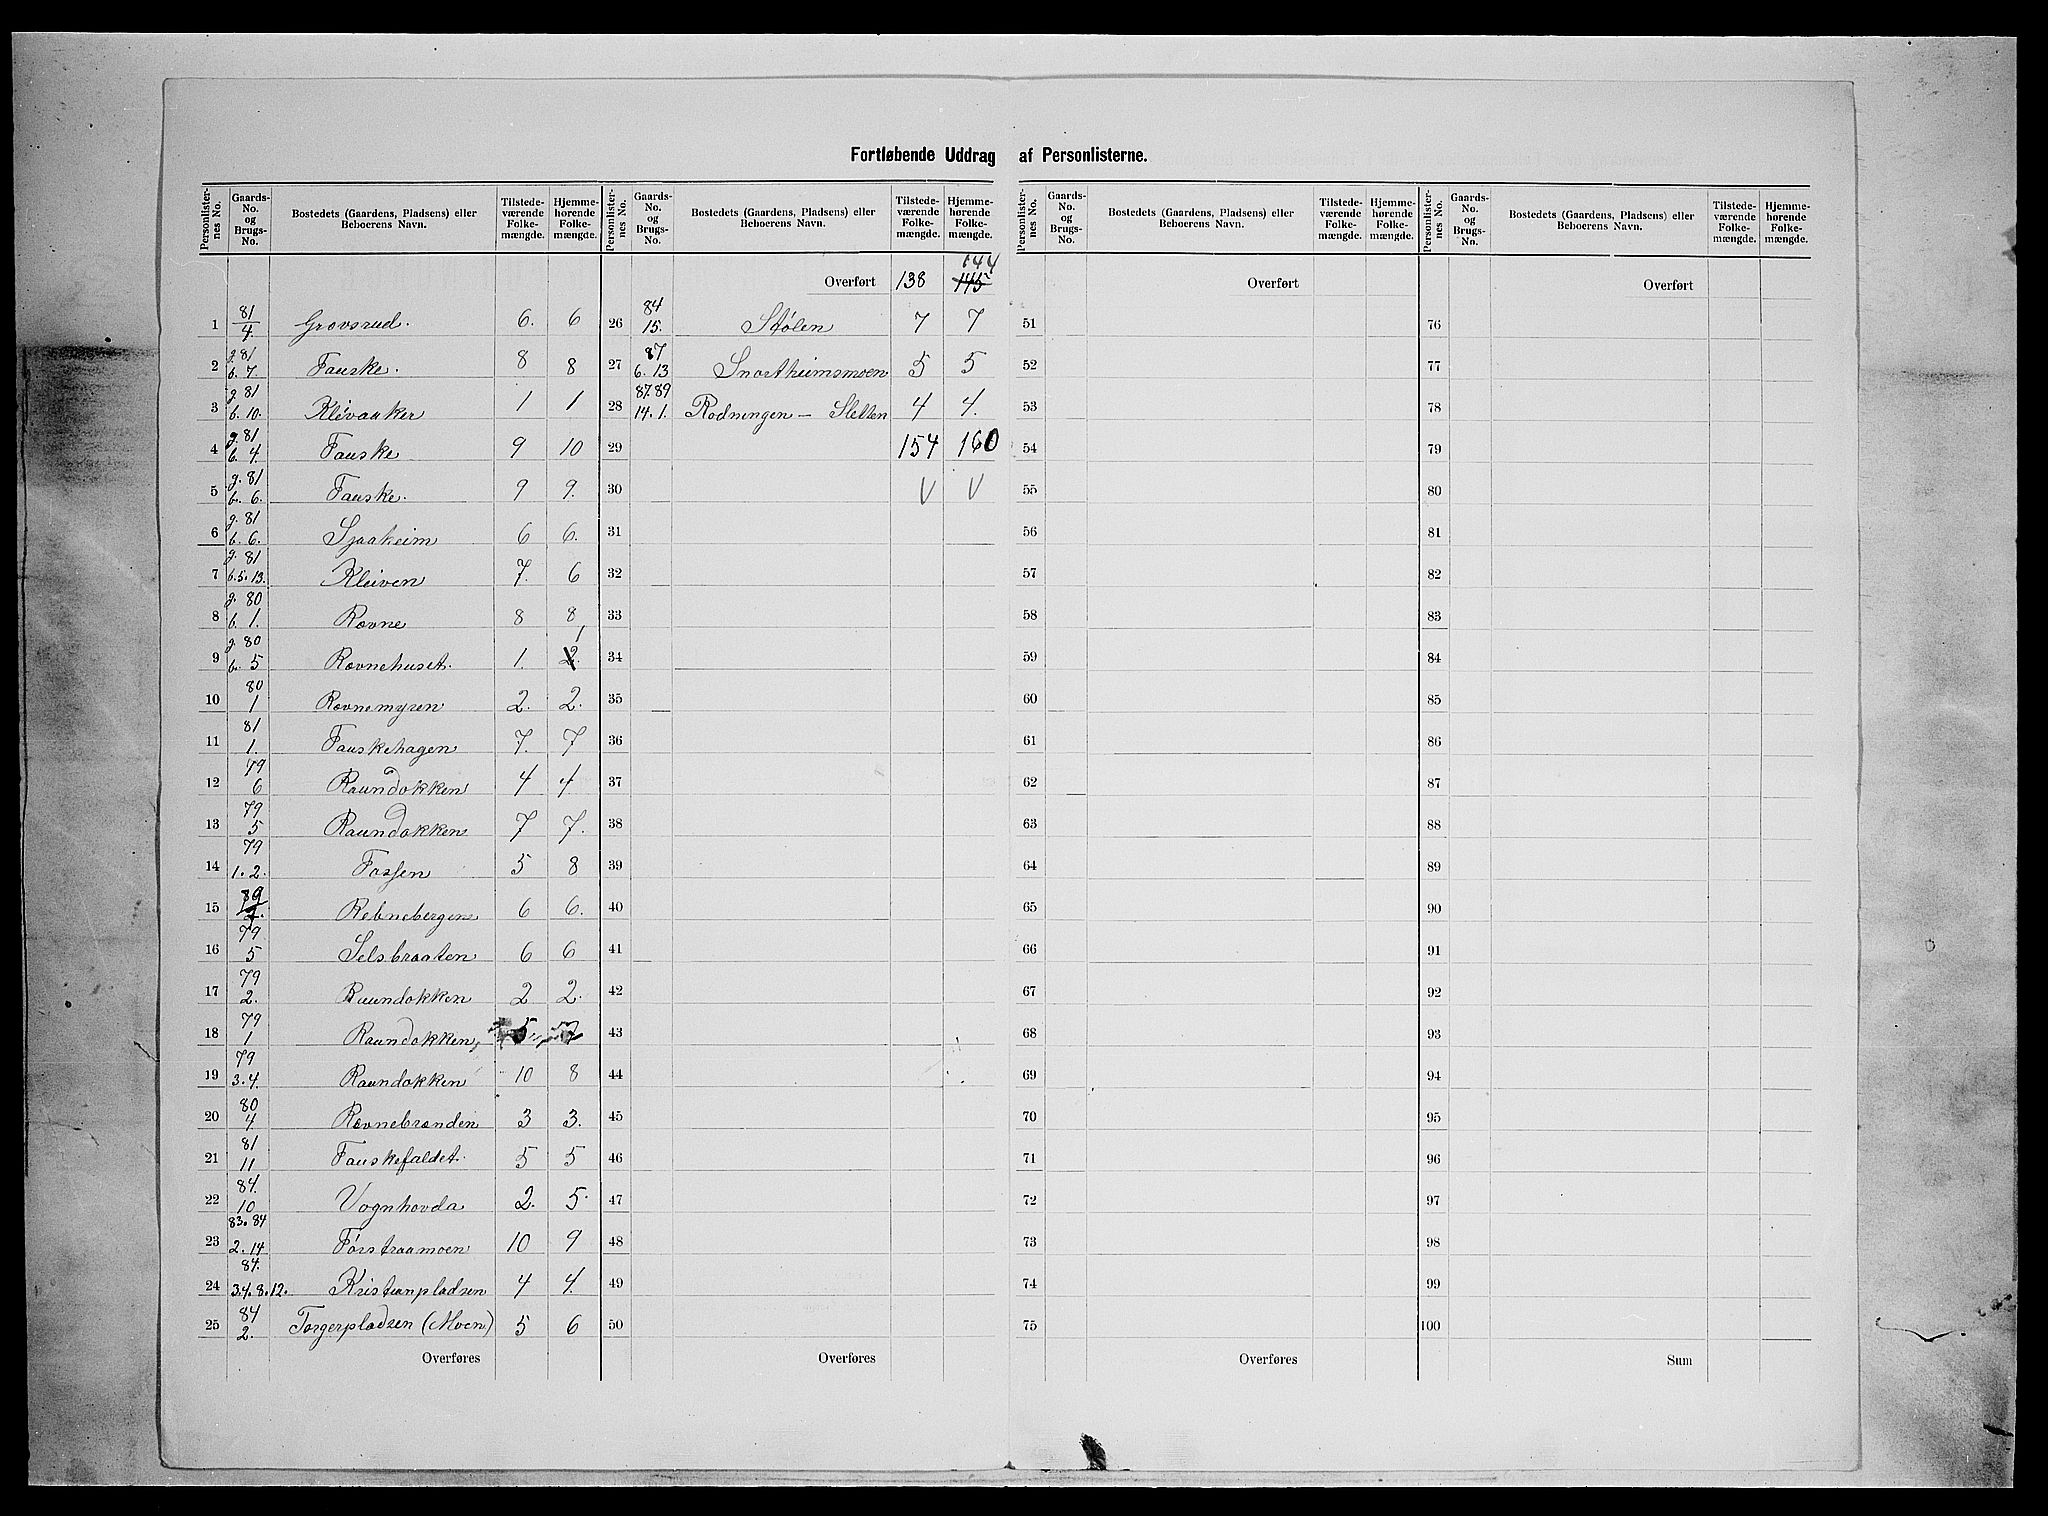 Fortløbende Uddrag af Personlisterne.
Personlisternes No. Gaards-No. og Brugs-No. Bostedets (Gaardens, Pladsens) eller Beboerens Navn. Tilstedeværende Folkemængde. Hjemmehørende Folkemængde.
1 81/4. Grovsrud. 6. 6
2 g. 81 b. 7. Fauske. 8 8
3 g. 81 b. 10. Klevaaker 1 1
4 g. 81 b. 4. Fauske 9 10
5 g. 81 b. 6. Fauske. 9 9.
6 g. 81 b. 6. Sjaaheim 6 6.
7 g. 81 b. 5. 13. Kleiven 7. 6
8 g. 80 b. 1. Rovne 8 8
9 g. 80 b. 5 Rovnehuset. 1. 2. 1
10 80 1 Rovnemyren 2. 2.
11 81 1. Fauskehagen 7. 7
12 79 6 Raundokken 4 4.
13 79 5 Raundokken 7 7.
14 79 1. 2. Fossen 5 8
15 Rebnebergene 6 6.
16 79 5 Selsbraaten 6 6
17 79 2. Raundokken 2 2.
18 79 1 Raundokken 5
19 79 3. 4. Raundokken 10 8
20 80 4 Rovnebrænden 3 3.
21 81 11 Fauskefaldet. 5 5
22 84. 10 Vognhovda 2. 5.
23 83. 84 2. 14 Forstraamoen 10 9
24 84. 3. 4. 8. 12. Kristianpladsen 4 4.
25 84 2. Torgerpladsen (Moen) 5 6
Overføres
Personlisternes No. Gaards-No. og Brugs-No. Bostedets (Gaardens, Pladsens) eller Beboerens Navn. Tilstedeværende Folkemængde. Hjemmehørende Folkemængde.
144
Overført 138 145
26 84 15. Stølen 7 7
27 87 6. 13 Snortheimsmoen 5 5
28 87. 89 14. 1. Rodningen - Sletten 4 4.
29 154 160
30 V V
31
32
33
34
35
36
37
38
39
40
41
42
43
44
45
46
47
48
49
50
Overføres
Personlisternes No. Gaards-No. og Brugs-No. Bostedets (Gaardens, Pladsens) eller Beboerens Navn. Tilstedeværende Folkemængde. Hjemmehørende Folkemængde.
Overført
51
52
53
54
55
56
57
58
59
60
61
62
63
64
65
66
67
68
69
70
71
72
73
74
75
Overføres
Personlisternes No. Gaards-No. og Brugs-No. Bostedets (Gaardens, Pladsens) eller Beboerens Navn. Tilstedeværende Folkemængde. Hjemmehørende Folkemængde.
Overført
76
77
78
79
80
81
82
83
84
85
86
87
88
89
90
91
92
93
94
95
96
97
98
99
100
Sum